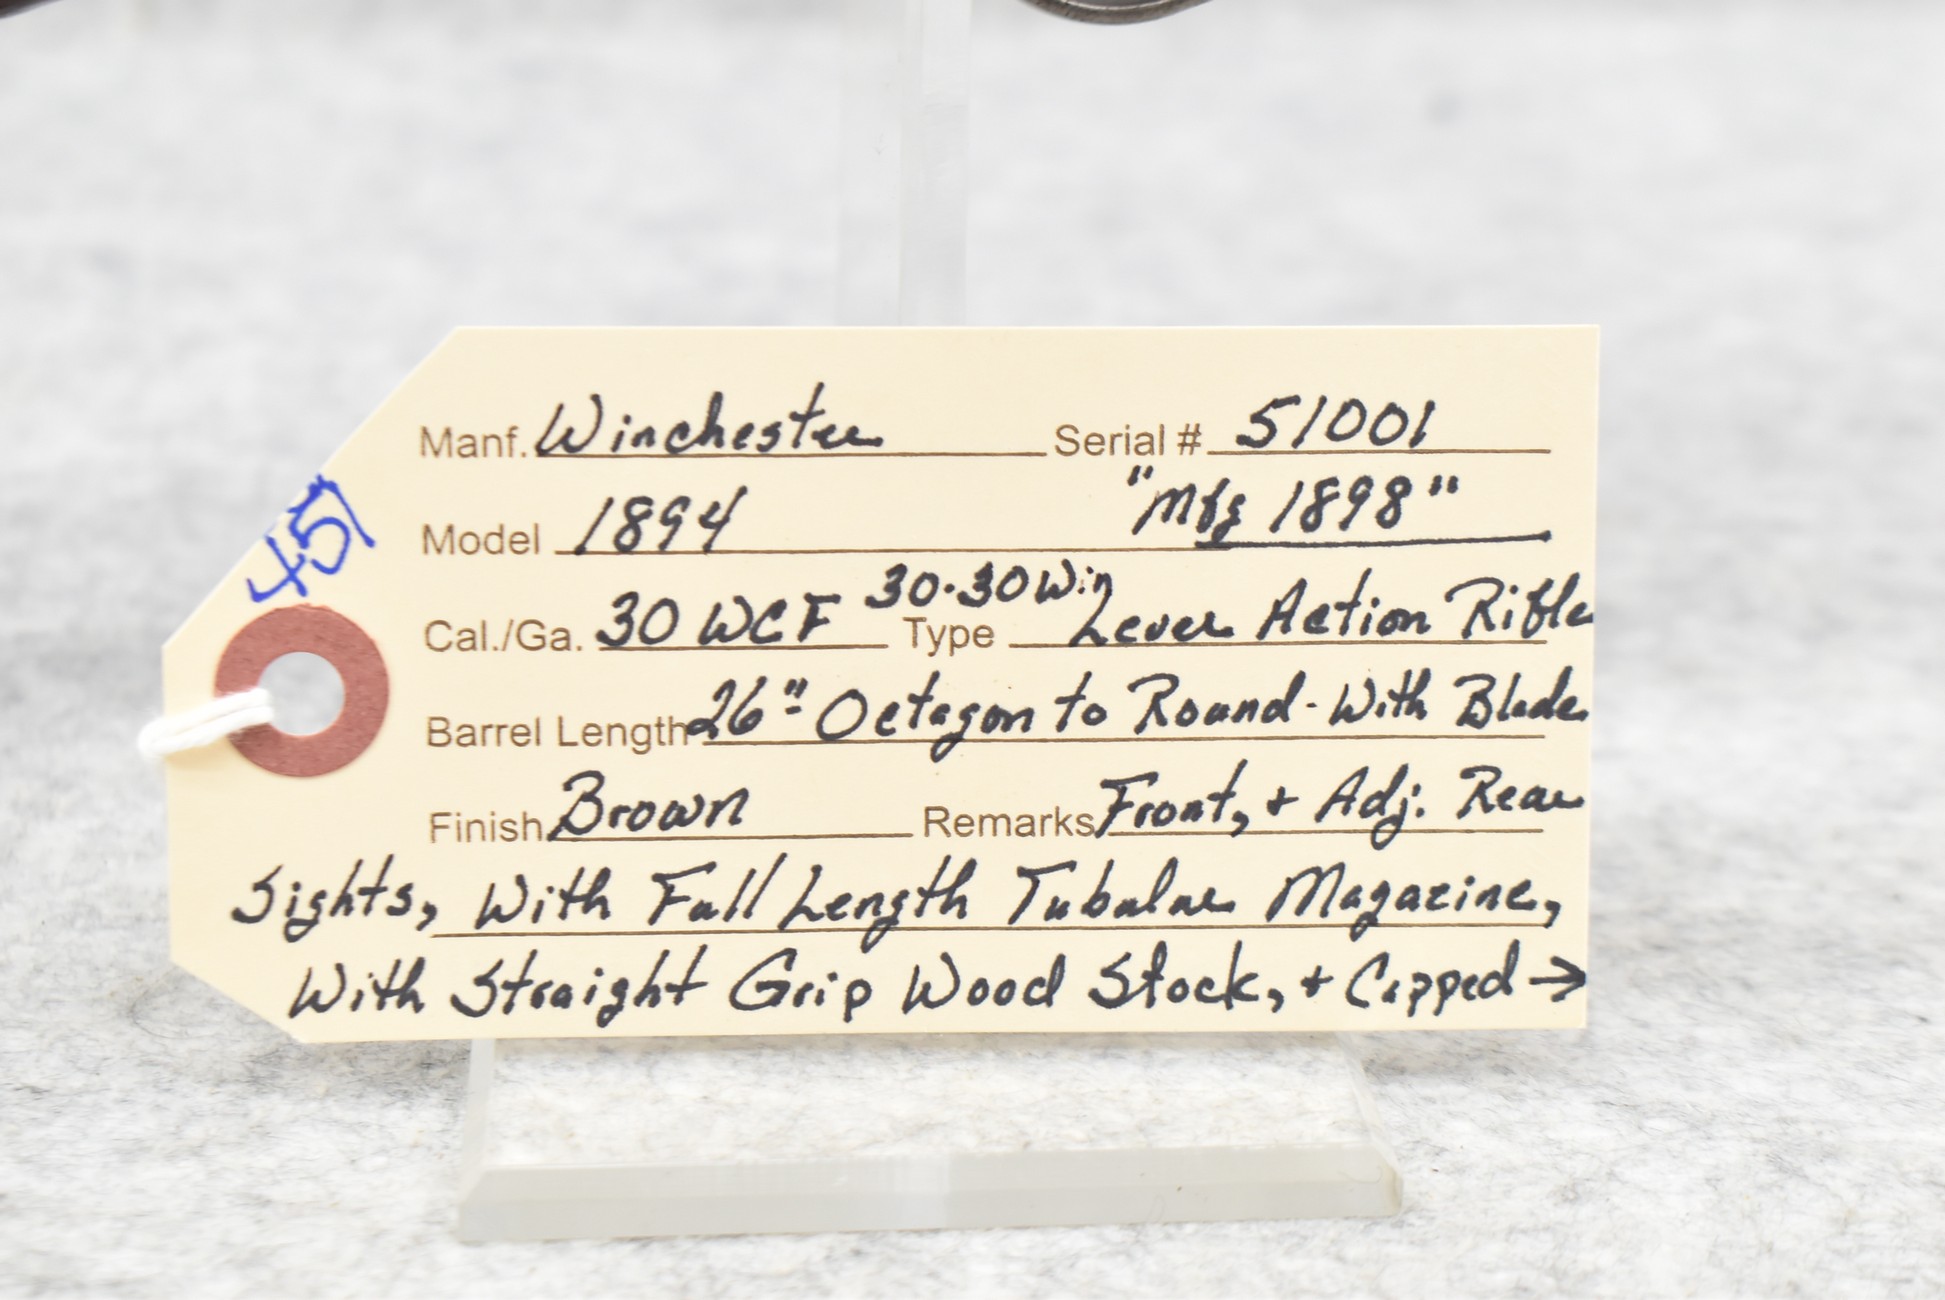 451
Manf. Winchester Serial # 51001
Model 1894 "Mfg 1898"
Cal./Ga. 30 WCF 30-30 Win Type Lever Action Rifle
Barrel Length 26" Octagon to Round - With Blade
Finish Brown Remarks Front, + Adj. Rear
Sights, With Full Length Tubular Magazine,
With Straight Grip Wood Stock, + Capped →